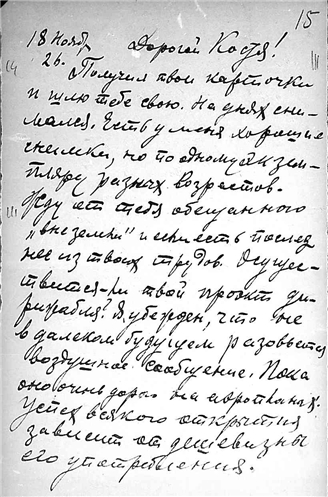 15
18 Нояб. Дорогой Костя!
26.
Получил твои карточки
и шлю тебе свою. На днях сни-
мался. Есть у меня хорошие
снимки, но по одному экзем-
пляру разных возрастов.
Жду от тебя обещанного
„вне земли" и если есть послед
нее из твоих трудов. Осущес-
твится-ли твой проэкт ди-
рижабля? Я убежден, что не
в далеком будущем разовьется
воздушное сообщение. Пока
оно очень дорого на аэропланах.
Успех всякого открытия
зависит от дешевизны
его употребления.